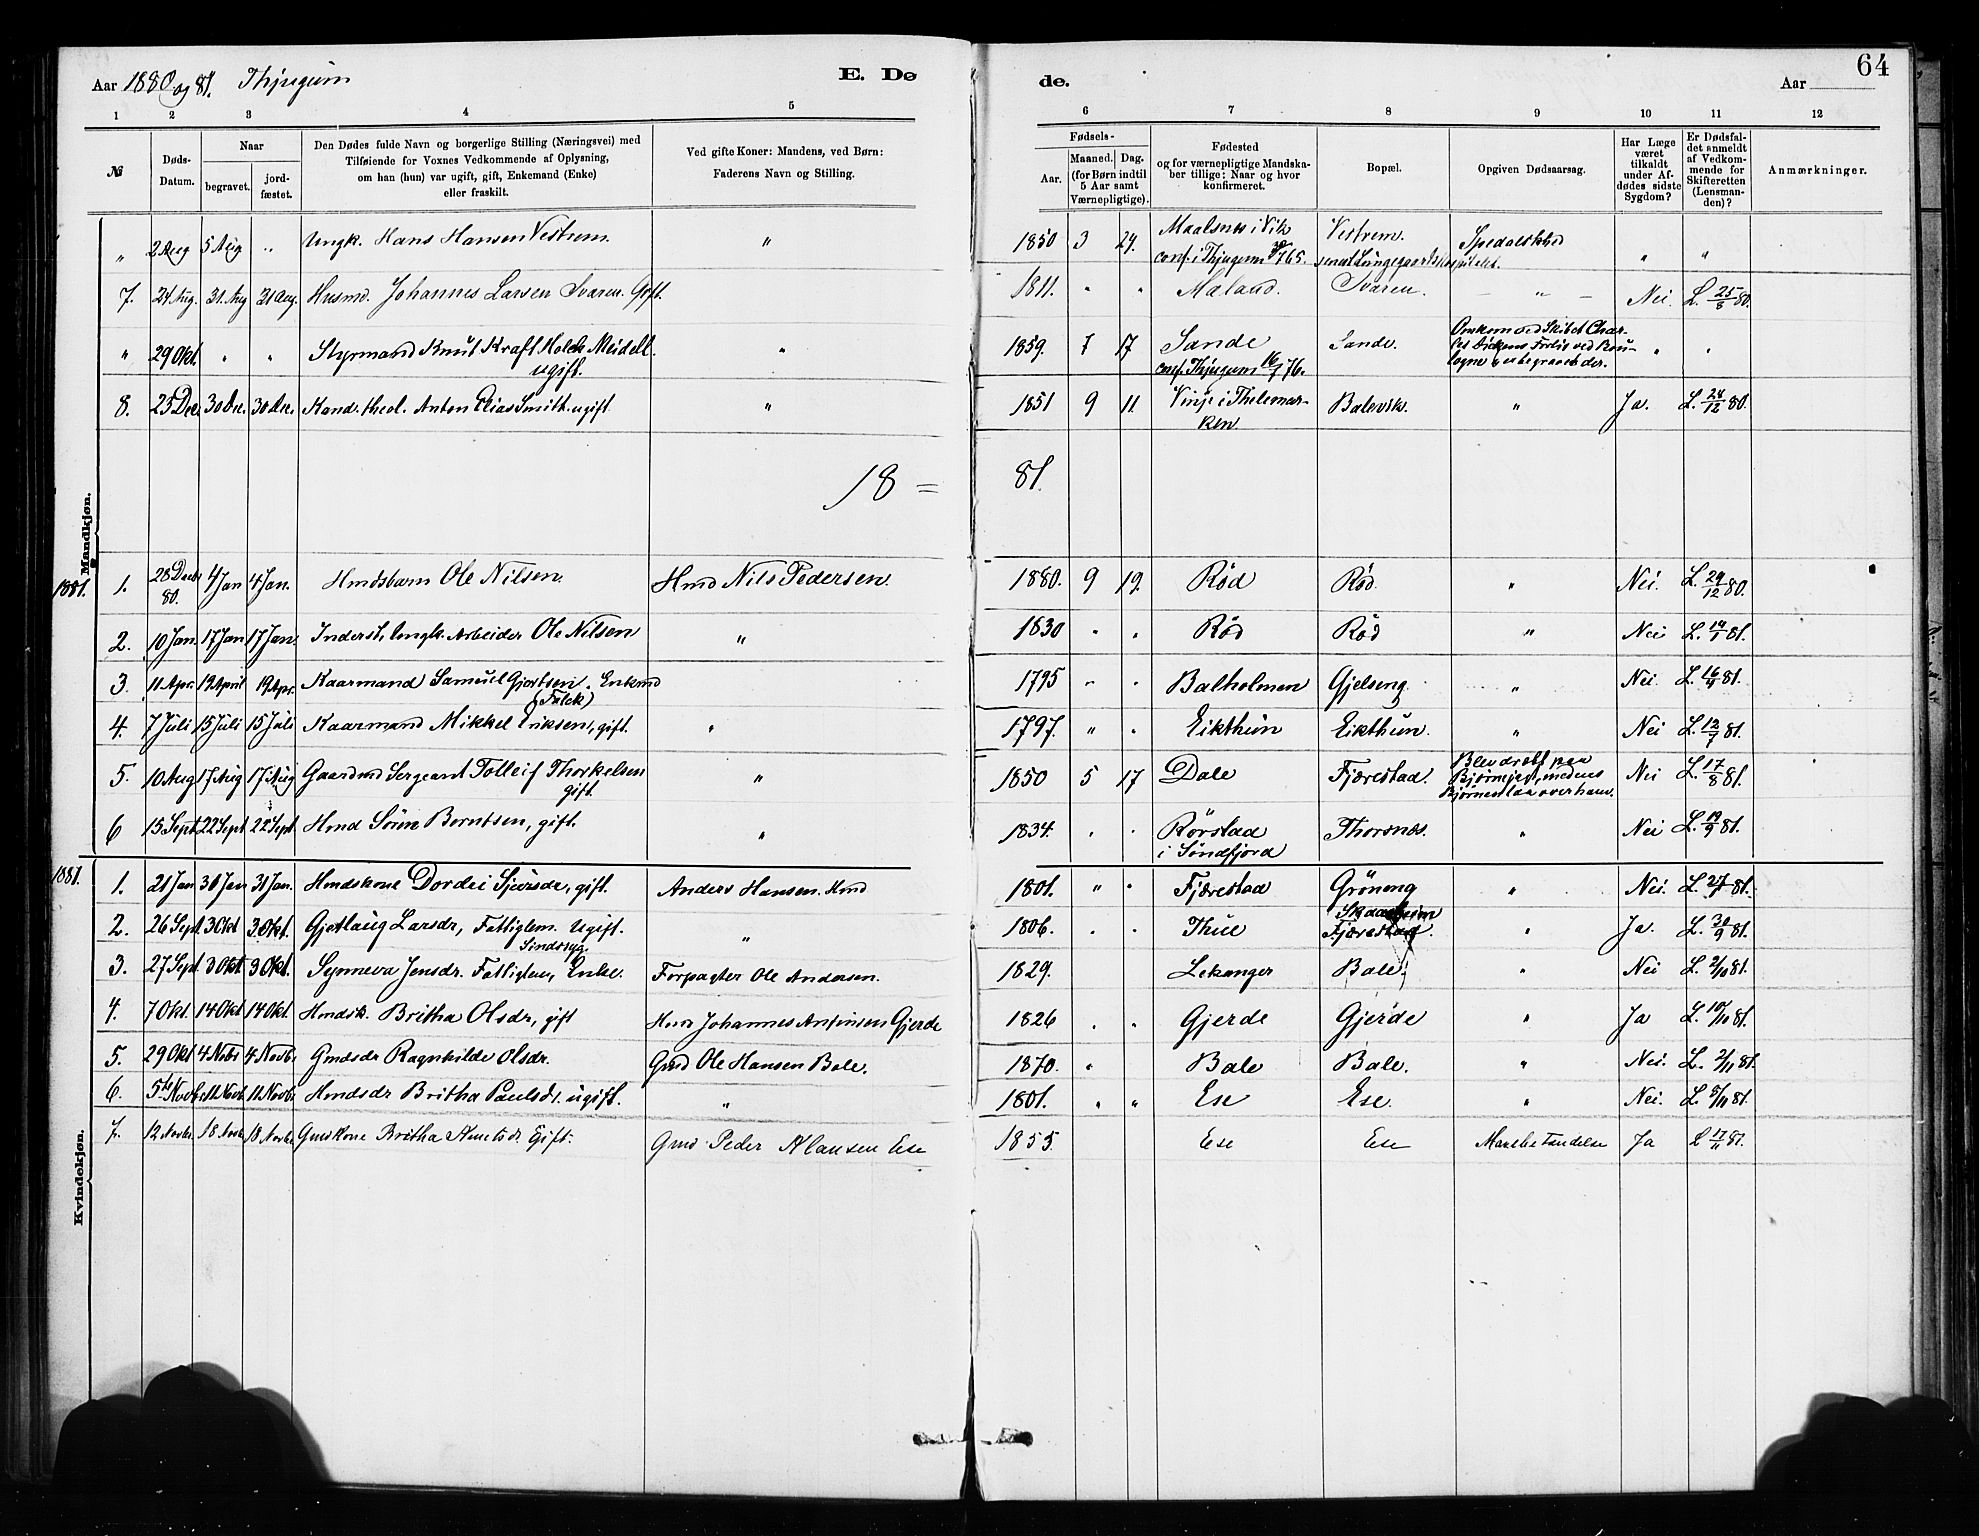 Aar 1880 og 81. Thjugum E. Dø
de. Aar 64
1 2 3 4 5
6 7 8 9 10 11 12
№ Døds-Datum. Naar begravet. jordfæstet. Den Dødes fulde Navn og borgerlige Stilling (Næringsvei) med Tilføiende for Voxnes Vedkommende af Oplysning, om han (hun) var ugift, gift, Enkemand (Enke) eller fraskilt. Ved gifte Koner: Mandens, ved Børn: Faderens Navn og Stilling.
Fødsels- Aar. Maaned. Dag. (for Børn indtil 5 Aar samt Værnepligtige). Fødested og for værnepligtige Mandskaber tillige: Naar og hvor konfirmeret. Bopæl. Opgiven Dødsaarsag. Har Læge været tilkaldt under Afdødes sidste Sygdom? Er Dødsfaldet anmeldt af Vedkommende for Skifteretten (Lensmanden)? Anmærkninger.
Mandkjøn.
" 2 Aug 5 Aug " Ungk. Hans Hansen Vestrem. " 1850 3 29. Maalsnes i Vik Vestrem. Spedalskhed " "
conf. i Thjugum 65.
7. 24 Aug. 31. Aug 31 Aug. Husmd. Johannes Larsen Svaren. Gift. 1811. " " Mæland. Svaren. — " — Nei. L. 25/8 80.
" 29 Okt " " Styrmand Knut Kraft Holck Meidell. " 1859. 7 17 Sande Sande. Omkom ved Skibet Char-
ugift. conf. Thjugum 16/7 76. les Dickens Forlis ved Bou-
logne & er begravet der. " "
8. 23 Dec. 30 Dec. 30 Dec. Kand. theol. Anton Elias Smitt. ugift " 1851 9 11. Vinje i Thelemar- Balevik. " Ja. L. 24/12 80.
ken.
18 = 81.
1881. 1. 28 Decbr 80. 4 Jan 4 Jan. Hmdsbarn Ole Nilsen. Hmd Nils Pedersen. 1880. 9 19. Rød Rød. " Nei. L. 29/12 80.
2. 10 Jan. 17 Jan 17 Jan. Inderst, Ungk. Arbeider Ole Nilsen " 1830 " " Rød Rød " Nei L. 14/1 81.
3. 11 Apr. 19 April 19 Apr. Kaarmand Samuel Gjertsen, Enkmd 1795 " " Balholmen Gjelseng. " Nei. L. 16/4 81.
(Falck)
4. 7 Juli 15 Juli 15 Juli Kaarmand Mikkel Eriksen, gift. " 1797. " " Eikthun Eikthun. " Nei L. 12/7 81.
5. 10 Aug 17 Aug 17 Aug Gaardmd Sergeant Tolleif Thorkelsen " 1850 5 17 Dale Fjærestad. Blev dræbt paa Nei L. 17/8 81.
gift. Bjørnejagt, medens
Bjørnen laa over ham.
6 15 Sept 22 Sept 22 Sept Hmd Søren Berntsen, gift. " 1834. " " Rørstad Thorsnæs. " Nei L. 19/9 81.
i Søndfjord
1881. 1. 21 Jan 31 Jan 31 Jan. Hmdskone Dordei Sjursdr, gift. Anders Hansen. Hmd 1801. " " Fjærestad Grøneng " Nei. L. 81.
2. 26 Sept. 3 Okt 3 Okt. Gjetlaug Larsdr, Fattiglem. Ugift. " 1806. " " Thue Skaasheim Fjærestad. " Ja. L. 30/9 81.
Sindssyg.
3. 27 Sept 3 Okt 3 Okt. Synneva Jensdr. Fattiglem, Enke. Forpagter Ole Andersen. 1829. " " Lekanger Bale. " Nei L. 2/10 81.
4. 7 Okt. 14 Okt 14 Okt. Hmdsk. Britha Olsdr, gift Hmd Johannes Anfinsen Gjerde 1826 " " Gjerde Gjerde " Ja L. 10/10 81.
5. 29 Okt 4 Nobr 4 Novbr. Gmdsdr Ragnhilde Olsdr. Gmd Ole Hansen Bale. 1870. " Bale Bale. " Nei. L. 2/11 81.
6. 5te Novb. 11 Novb. 11 Novb. Hmdsdr Britha Paulsdr. ugift. " 1801. " " Ese Ese. " Nei. L. 8/11 81.
Kvindekjøn.
7. 12 Novbr. 18 Novbr 18 Novbr. Gmdskone Britha Anetsdr Gift. Gmd Peder Klausen Ese 1855. Ese Ese Mavebetændelse Ja L 17/11 81.